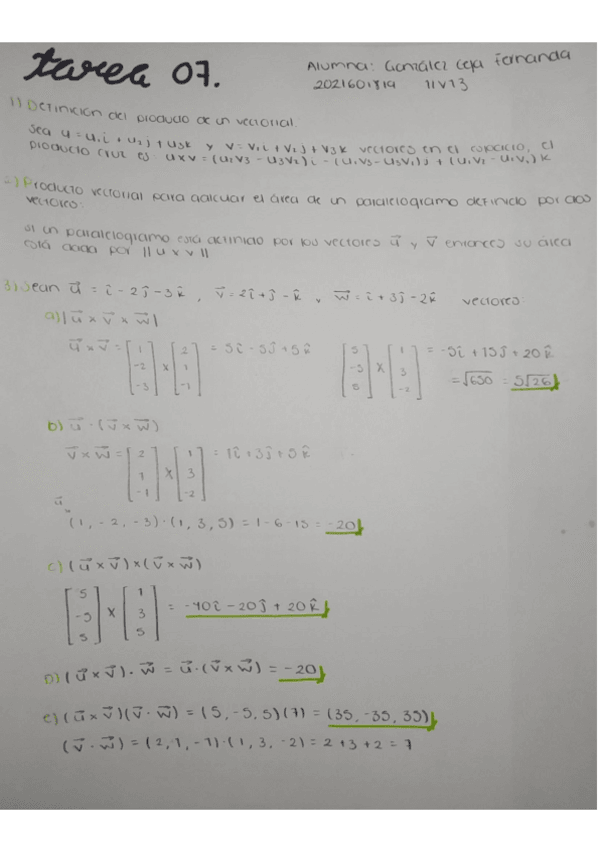 tarea 07.
Alumna: González Ceja Fernanda
11V13
1) Definición del producto de un vectorial.
Sea u = u₁i + u₂j + u₃k y v = v₁i + v₂j + v₃k vectores en el espacio, el
producto cruz es: u×v = (u₂v₃ - u₃v₂)i - (u₁v₃ - u₃v₁)j + (u₁v₂ - u₂v₁)k
2) Producto vectorial para calcular el área de un paralelogramo definido por dos
vectores:
si un paralelogramo está definido por los vectores u⃗ y v⃗ entonces su área
está dada por ||u × v||
3) Sean u⃗ = î - 2ĵ - 3k̂ , v⃗ = 2î + ĵ - k̂ , w⃗ = î + 3ĵ - 2k̂ vectores:
a) |u⃗ × v⃗ × w⃗|
u⃗ × v⃗ = [1 -2 -3] × [2 1 -1] = 5î - 5ĵ + 5k̂ [5 -5 5] × [1 3 -2] = -5î + 15ĵ + 20k̂
= √650 = 5√26
b) u⃗ · (v⃗ × w⃗)
v⃗ × w⃗ = [2 1 -1] × [1 3 -2] = 1î + 3ĵ + 5k̂
u⃗
(1, -2, -3) · (1, 3, 5) = 1 - 6 - 15 = -20
c) (u⃗ × v⃗) × (v⃗ × w⃗)
[5 -5 5] × [1 3 5] = -40î - 20ĵ + 20k̂
D) (u⃗ × v⃗) · w⃗ = u⃗ · (v⃗ × w⃗) = -20
e) (u⃗ × v⃗)(v⃗ · w⃗) = (5, -5, 5)(7) = (35, -35, 35)
(v⃗ · w⃗) = (2, 1, -1) · (1, 3, -2) = 2 + 3 + 2 = 7